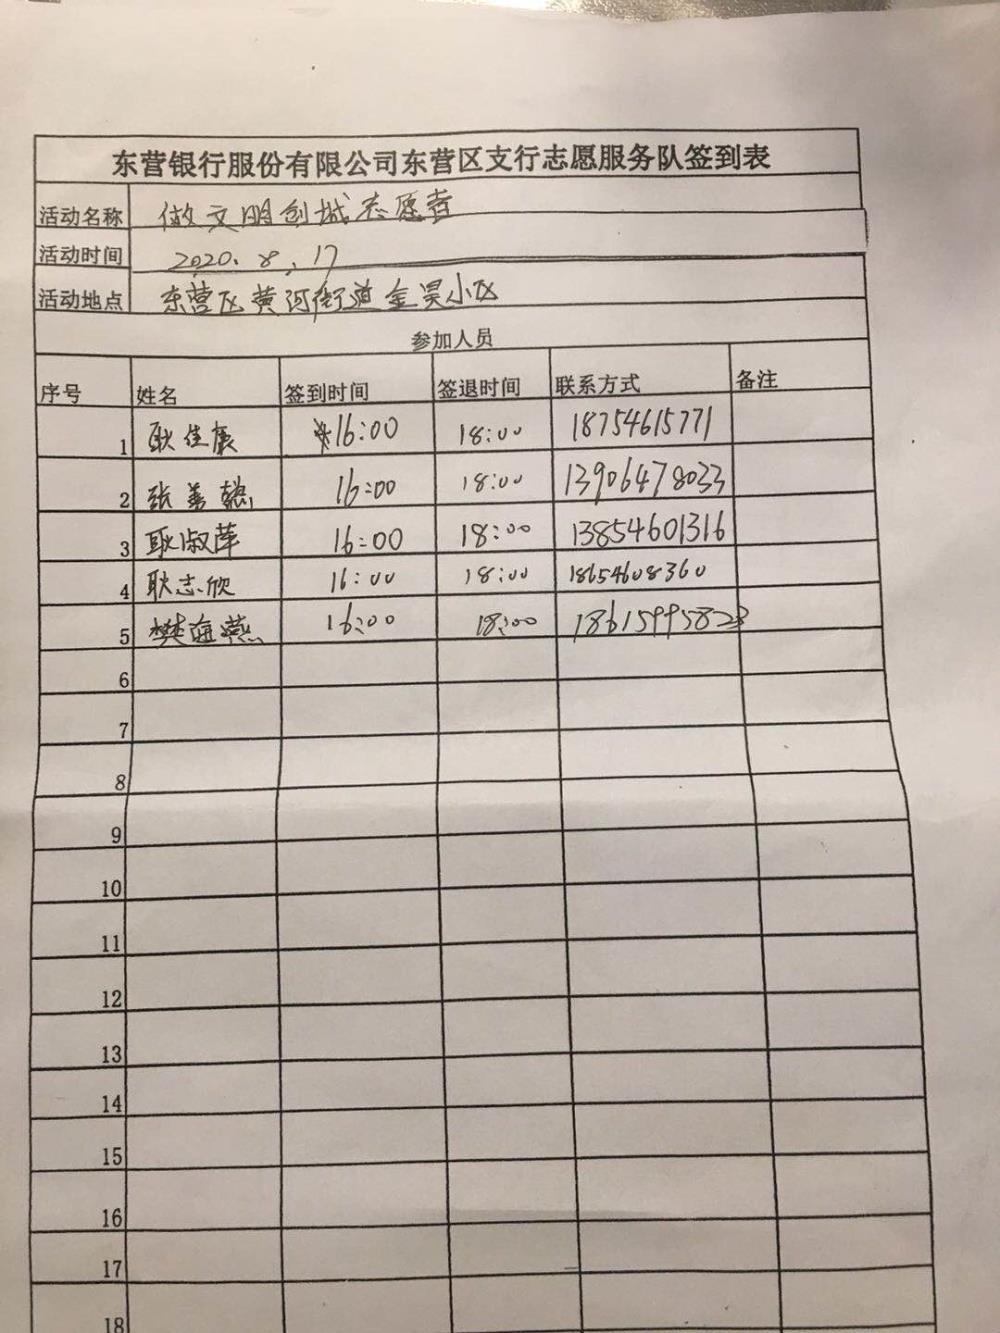 东营银行股份有限公司东营区支行志愿服务队签到表
活动名称 做文明创城志愿者
活动时间 2020.8.17
活动地点 东营区黄河街道金昊小区
参加人员
序号 姓名 签到时间 签退时间 联系方式 备注
1 耿佳展 16:00 18:00 18754615771
2 张善懿 16:00 18:00 13906478033
3 耿淑萍 16:00 18:00 13854601316
4 耿志欣 16:00 18:00 18654608360
5 樊海燕 16:00 18:00 18615995823
6
7
8
9
10
11
12
13
14
15
16
17
18